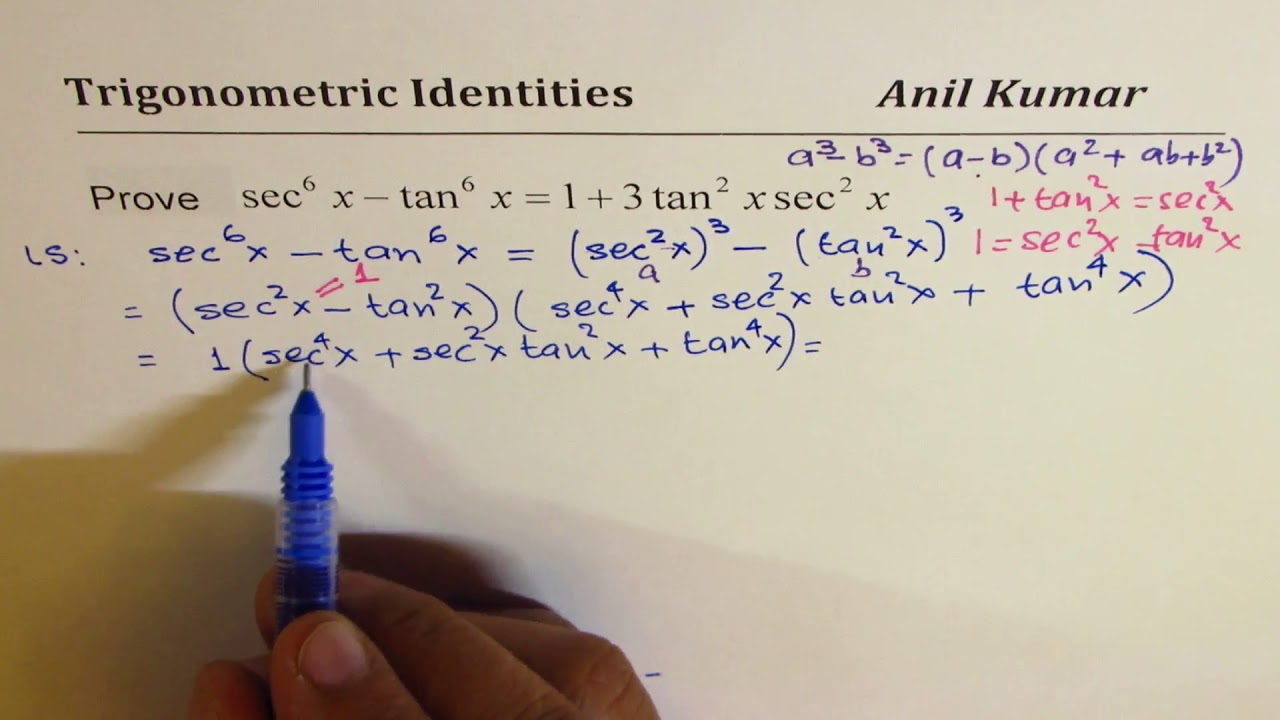 Trigonometric Identities Anil Kumar
a³-b³=(a-b)(a²+ab+b²)
Prove sec⁶ x − tan⁶ x = 1 + 3 tan² x sec² x
1+tan²x=sec²x
LS: sec⁶x − tan⁶x = (sec²x)³ − (tan²x)³
1=sec²x-tan²x
a b
=1
= (sec²x − tan²x)(sec⁴x + sec²x tan²x + tan⁴x)
= 1(sec⁴x + sec²x tan²x + tan⁴x) =